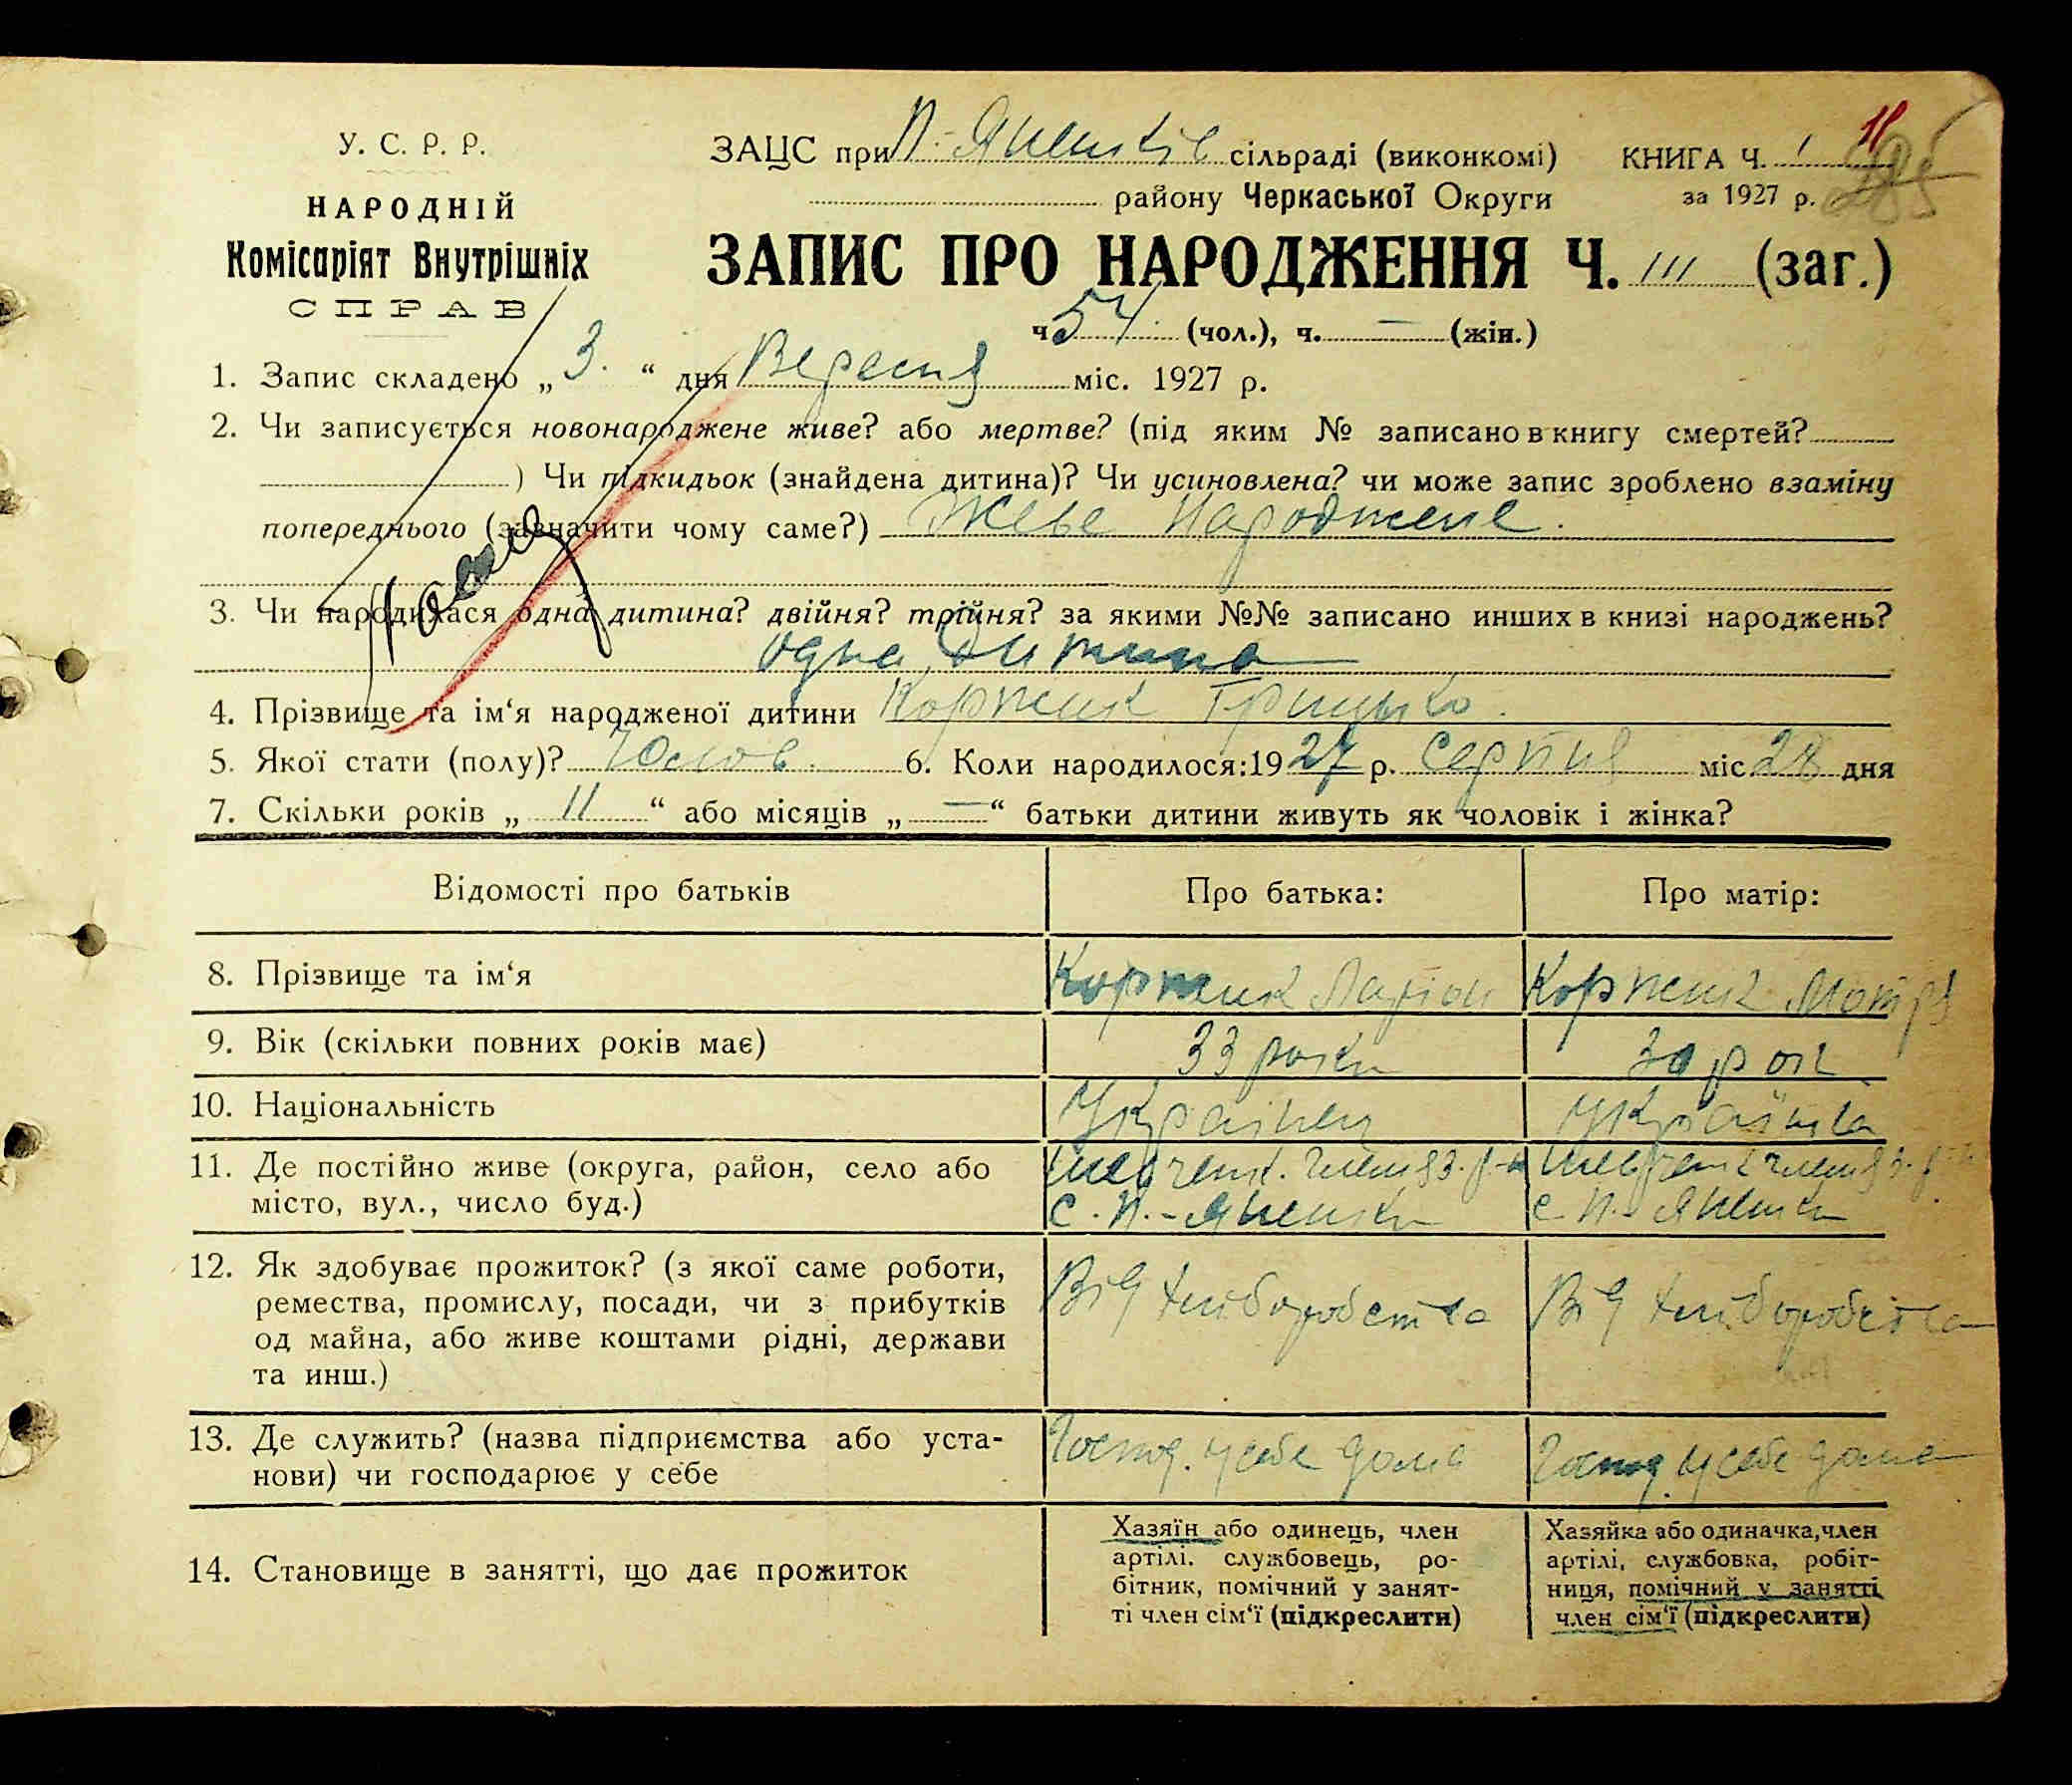 У. С. Р. Р.
НАРОДНІЙ
Комісаріят Внутрішніх
СПРАВ
ЗАЦС при сільраді (виконкомі)
району Черкаської Округи
КНИГА Ч. 1
за 1927 р.
ЗАПИС ПРО НАРОДЖЕННЯ Ч. 111 (заг.)
ч. 54 (чол.), ч. — (жін.)
1. Запис складено „ 3. “ дня Вересня міс. 1927 р.
2. Чи записується новонароджене живе? або мертве? (під яким № записано в книгу смертей?
) Чи підкидьок (знайдена дитина)? Чи усиновлена? чи може запис зроблено взаміну
попереднього (зазначити чому саме?) Живе народжене.
3. Чи народилася одна дитина? двійня? трійня? за якими №№ записано инших в книзі народжень?
одна дитина
4. Прізвище та ім‘я народженої дитини Коржик Грицько.
5. Якої стати (полу)? Чолов. 6. Коли народилося: 1927 р. Серпня міс 28 дня
7. Скільки років „ 11 “ або місяців „ — “ батьки дитини живуть як чоловік і жінка?
Відомості про батьків Про батька: Про матір:
8. Прізвище та ім‘я Коржик Ларіон Коржик Мотря
9. Вік (скільки повних років має) 33 роки 30 рок
10. Національність Українец Українка
11. Де постійно живе (округа, район, село або
місто, вул., число буд.)
12. Як здобуває прожиток? (з якої саме роботи,
ремества, промислу, посади, чи з прибутків
од майна, або живе коштами рідні, держави
та инш.)
Від хліборобства Від хліборобства
13. Де служить? (назва підприємства або уста-
нови) чи господарює у себе
Господ. у себе дома Господ. у себе дома
14. Становище в занятті, що дає прожиток
Хазяїн або одинець, член
артілі, службовець, ро-
бітник, помічний у занят-
ті член сім‘ї (підкреслити)
Хазяйка або одиначка, член
артілі, службовка, робіт-
ниця, помічний у занятті
член сім‘ї (підкреслити)